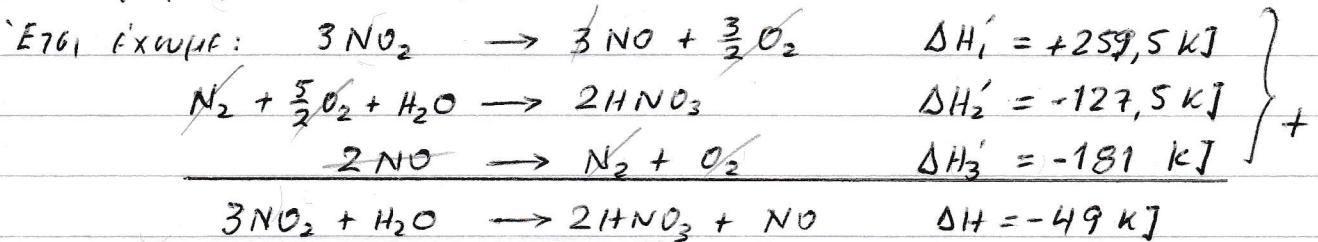 Έτσι έχωμε: 3 NO₂ → 3 NO + 3/2 O₂ ΔH₁′ = +259,5 KJ
N₂ + 5/2 O₂ + H₂O → 2HNO₃ ΔH₂′ = -127,5 KJ
2 NO → N₂ + O₂ ΔH₃′ = -181 KJ
+
3NO₂ + H₂O → 2HNO₃ + NO ΔH = -49 KJ